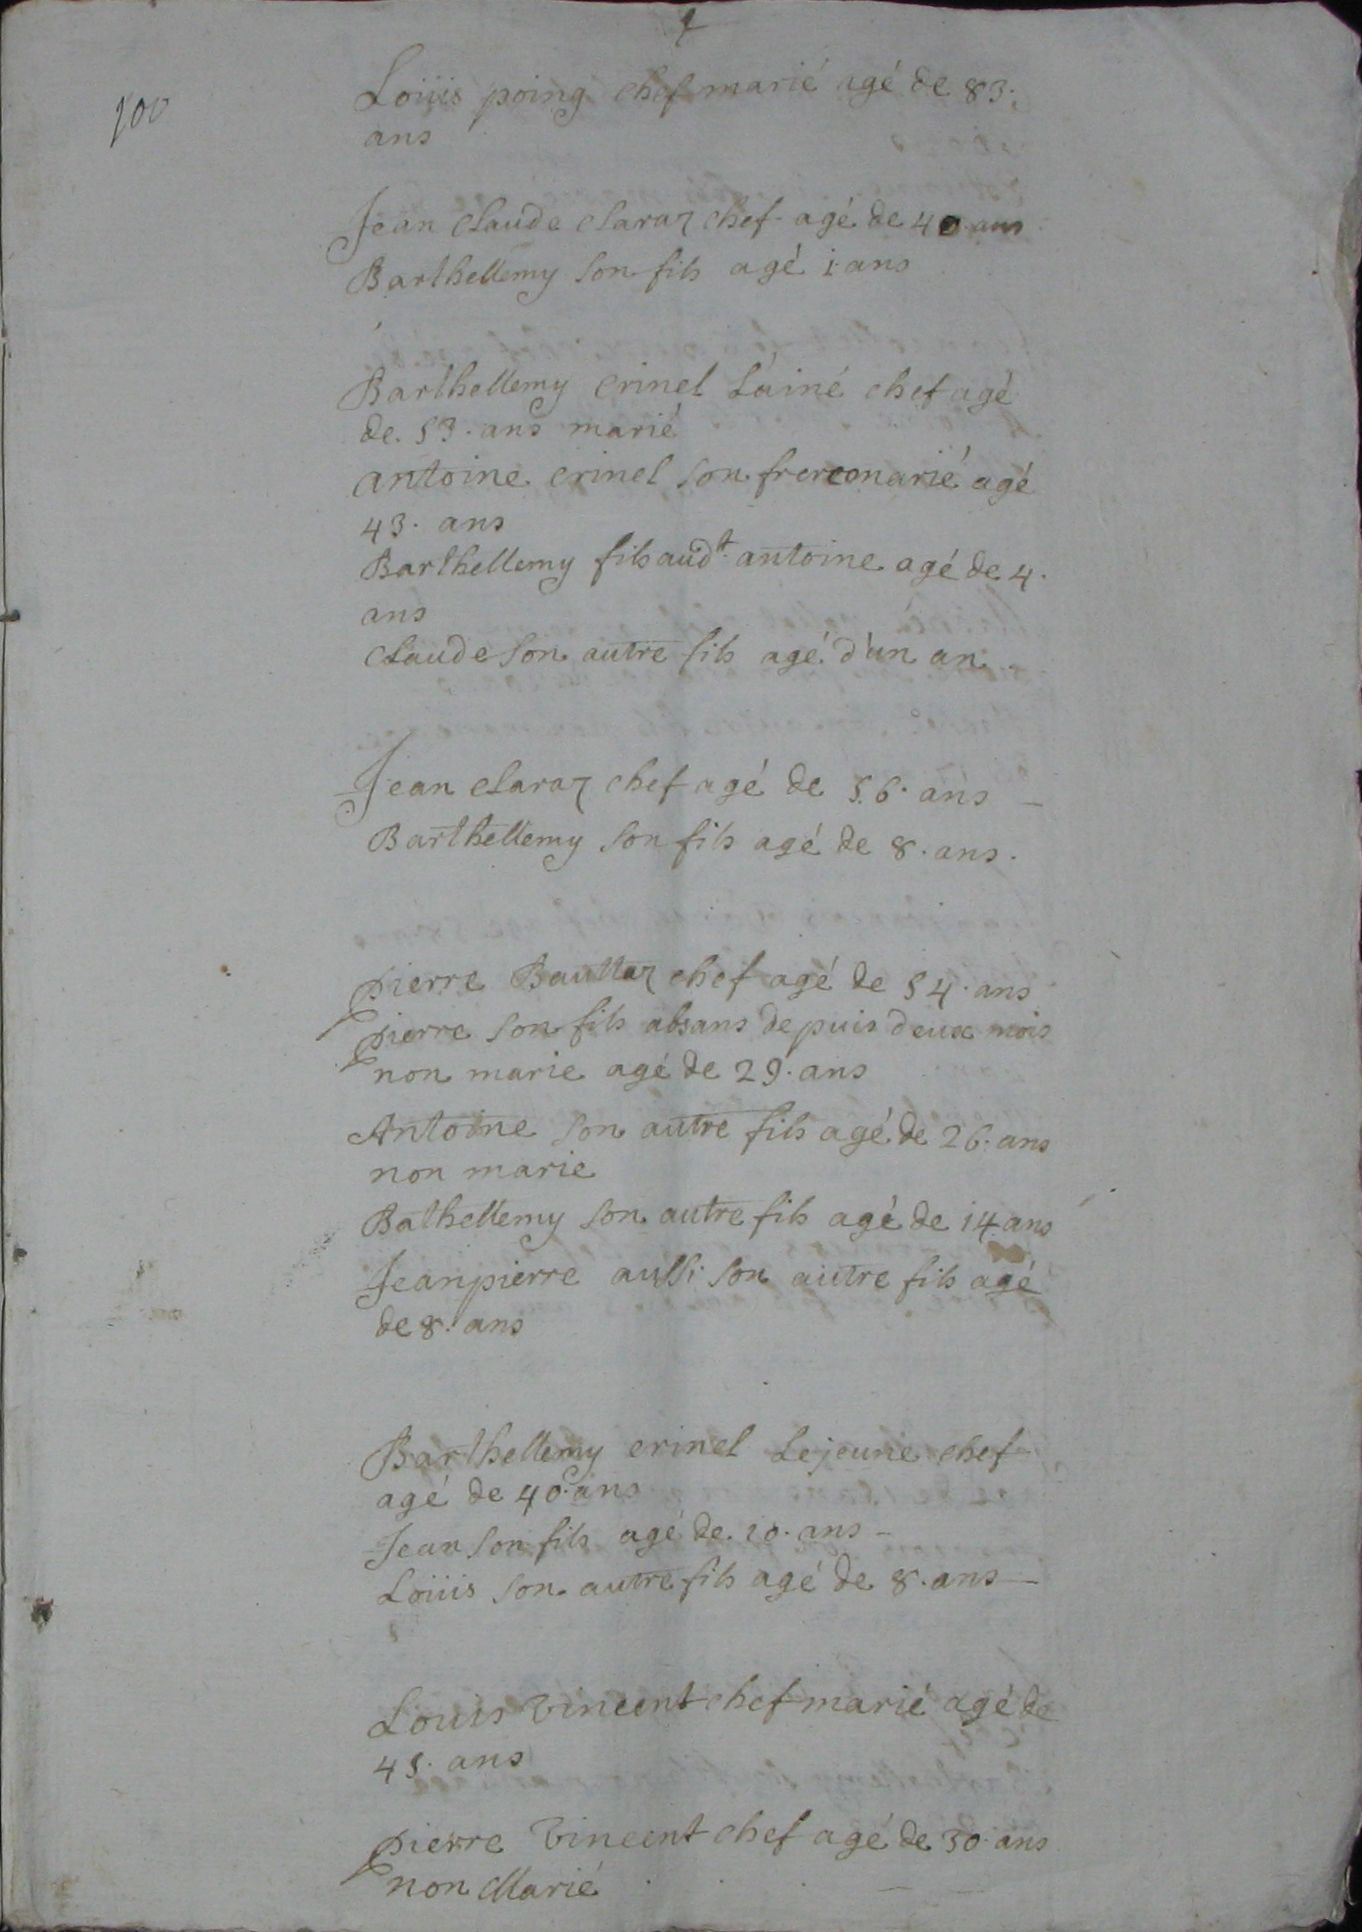 4
100
Loüis poing chef marié agé de 83.
ans
Jean claude claraz chef agé de 40 ans
Barthellemy son fils agé 1 ans
Barthellemy crinel L'ainé chef agé
de 53. ans marié
antoine crinel son frere marié agé
43. ans
Barthellemy fils audt. antoine agé de 4.
ans
claude son autre fils agé d'un an
Jean claraz chef agé de 56. ans
Barthellemy son fils agé de 8. ans.
pierre Bauttaz chef agé de 54. ans
pierre son fils absans depuis deux mois
non marie agé de 29. ans
Antoine son autre fils agé de 26. ans
non marie
Bathellemy son autre fils agé de 14 ans
Jeanpierre aussi son autre fils agé
de 8. ans
Barthellemy crinel Lejeune chef
agé de 40. ans
Jean son fils agé de 10. ans -
Loüis son autre fils agé de 8. ans -
Louis vincent chef marié agé de
45. ans
pierre vincent chef agé de 30. ans
non Marié